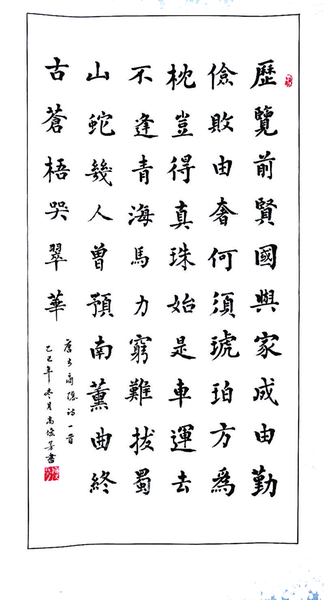 歷覽前賢國與家成由勤
儉敗由奢何須琥珀方為
枕豈得真珠始是車運去
不逢青海馬力窮難拔蜀
山蛇幾人曾預南薰曲終
古蒼梧哭翠華
唐李商隱詩一首
巳年冬月高書